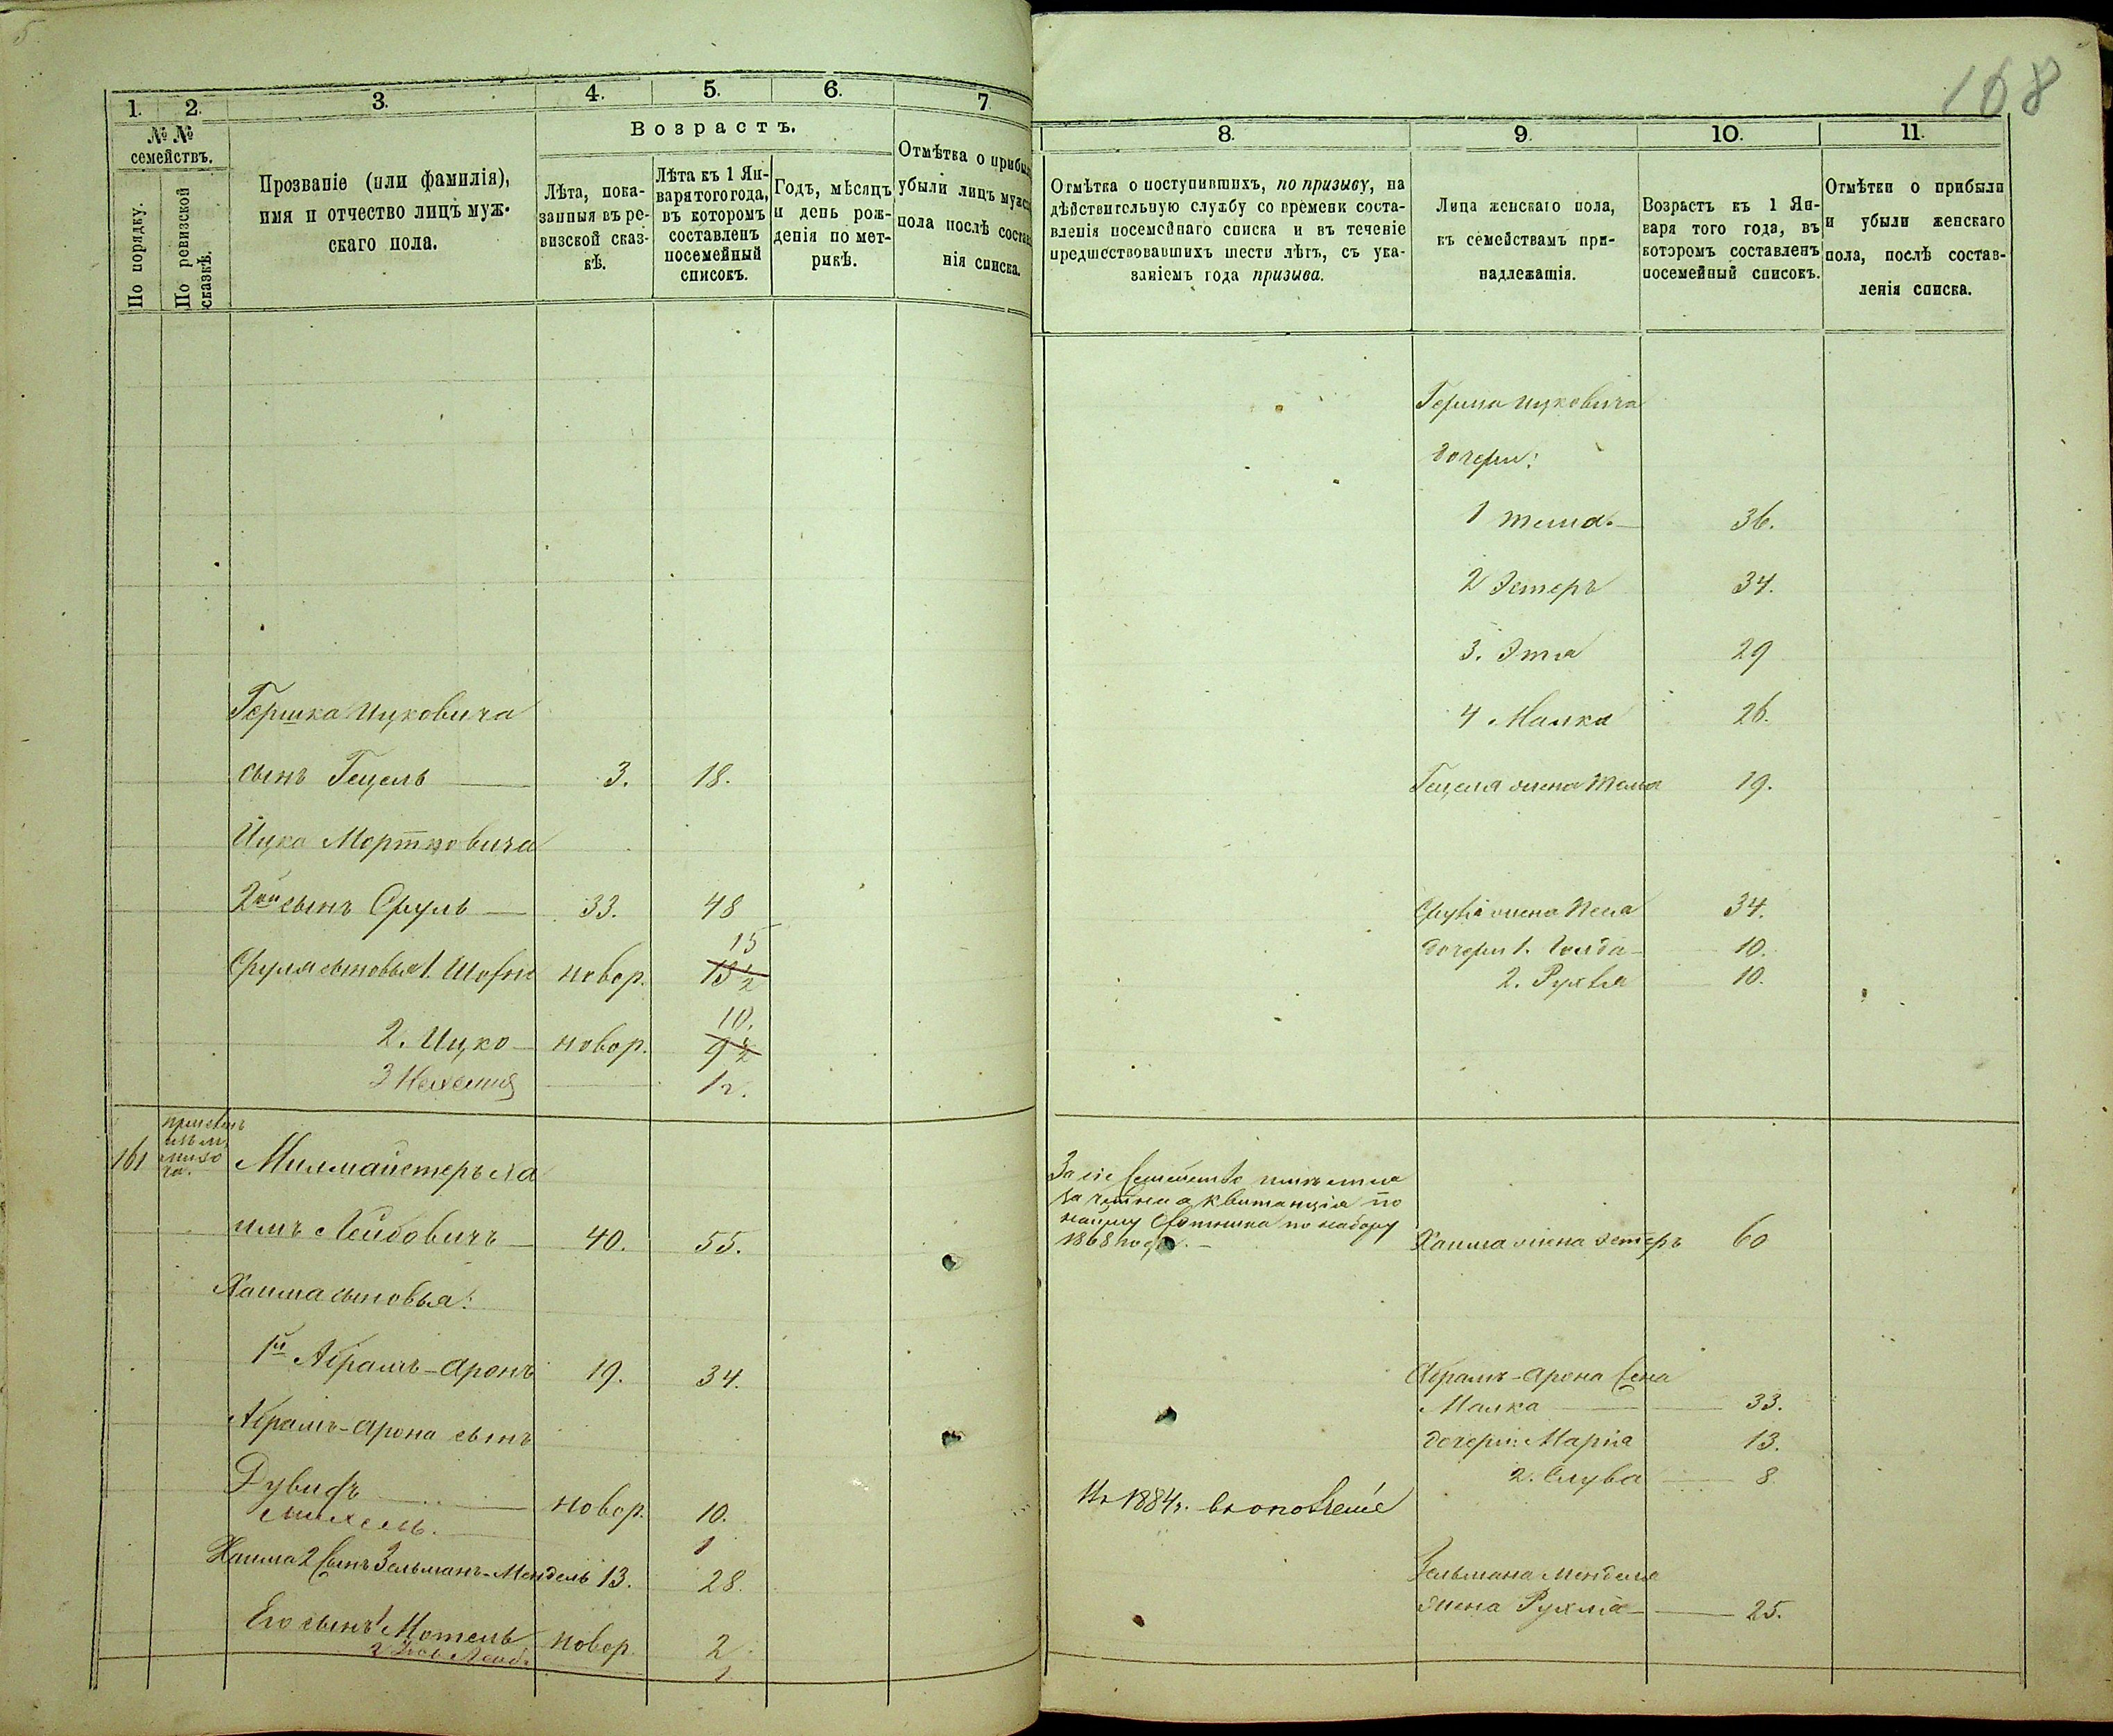 168
1. 2. 3. 4. 5. 6. 7.
№ №
семействъ.
По порядку.
По ревизской сказкѣ.
Прозваніе (или фамилія),
имя и отчество лицъ муж-
скаго пола.
Возрастъ.
Лѣта, пока-
занныя въ ре-
визской сказ-
кѣ.
Лѣта къ 1 Ян-
варя того года,
въ которомъ
составленъ
посемейный
списокъ.
Годъ, мѣсяцъ
и день рож-
денія по мет-
рикѣ.
Отмѣтка о прибы
убыли лицъ мужс
пола послѣ состав
нія списка.
Гершка Ицковича
сынъ Гецель 3. 18.
Ицка Мортковича
2ой сынъ Сруль 33. 48
Сруля сыновья 1. новор. 13½ 15
2. Ицко новор. 9½ 10.
3 Нехемия 1 г.
161
Милмайстеръ Ха
имъ Лейбовичъ 40. 55.
Хаима сыновья:
1й Абрамъ-Аронъ 19. 34.
Абрамъ-Арона сынъ
Дувидъ новор. 10.
Михель. 1
Хаима 2 сынъ Зельманъ-Мендель 13. 28.
Его сынъ 1 Мотель новор. 2
2 Лейб. 1
8. 9. 10. 11.
Отмѣтка о поступившихъ, по призыву, на
дѣйствительную службу со времени соста-
вленія посемейнаго списка и въ теченіе
предшествовавшихъ шести лѣтъ, съ ука-
заніемъ года призыва.
Лица женскаго пола,
къ семействамъ при-
надлежащія.
Возрастъ къ 1 Ян-
варя того года, въ
которомъ составленъ
посемейный списокъ.
Отмѣтки о прибыли
и убыли женскаго
пола, послѣ состав-
ленія списка.
Герша Ицковича
дочери:
1 36.
2 Эстеръ 34.
3. Эта 29
4 Малка 26.
Гецеля жена 19.
Сруля жена 34.
дочери 1. Голда 10.
2. Рухля 10.
За сие семейство имѣется
зачетная квитанція по
найму охотника по набору
1868 года.
Хаима жена Эстеръ 60
Абрамъ-Арона жена
Малка 33.
дочери: Марія 13.
2. Слува 8
На 1884 г. в ополченіе
Зельмана Менделя
жена Рухля 25.